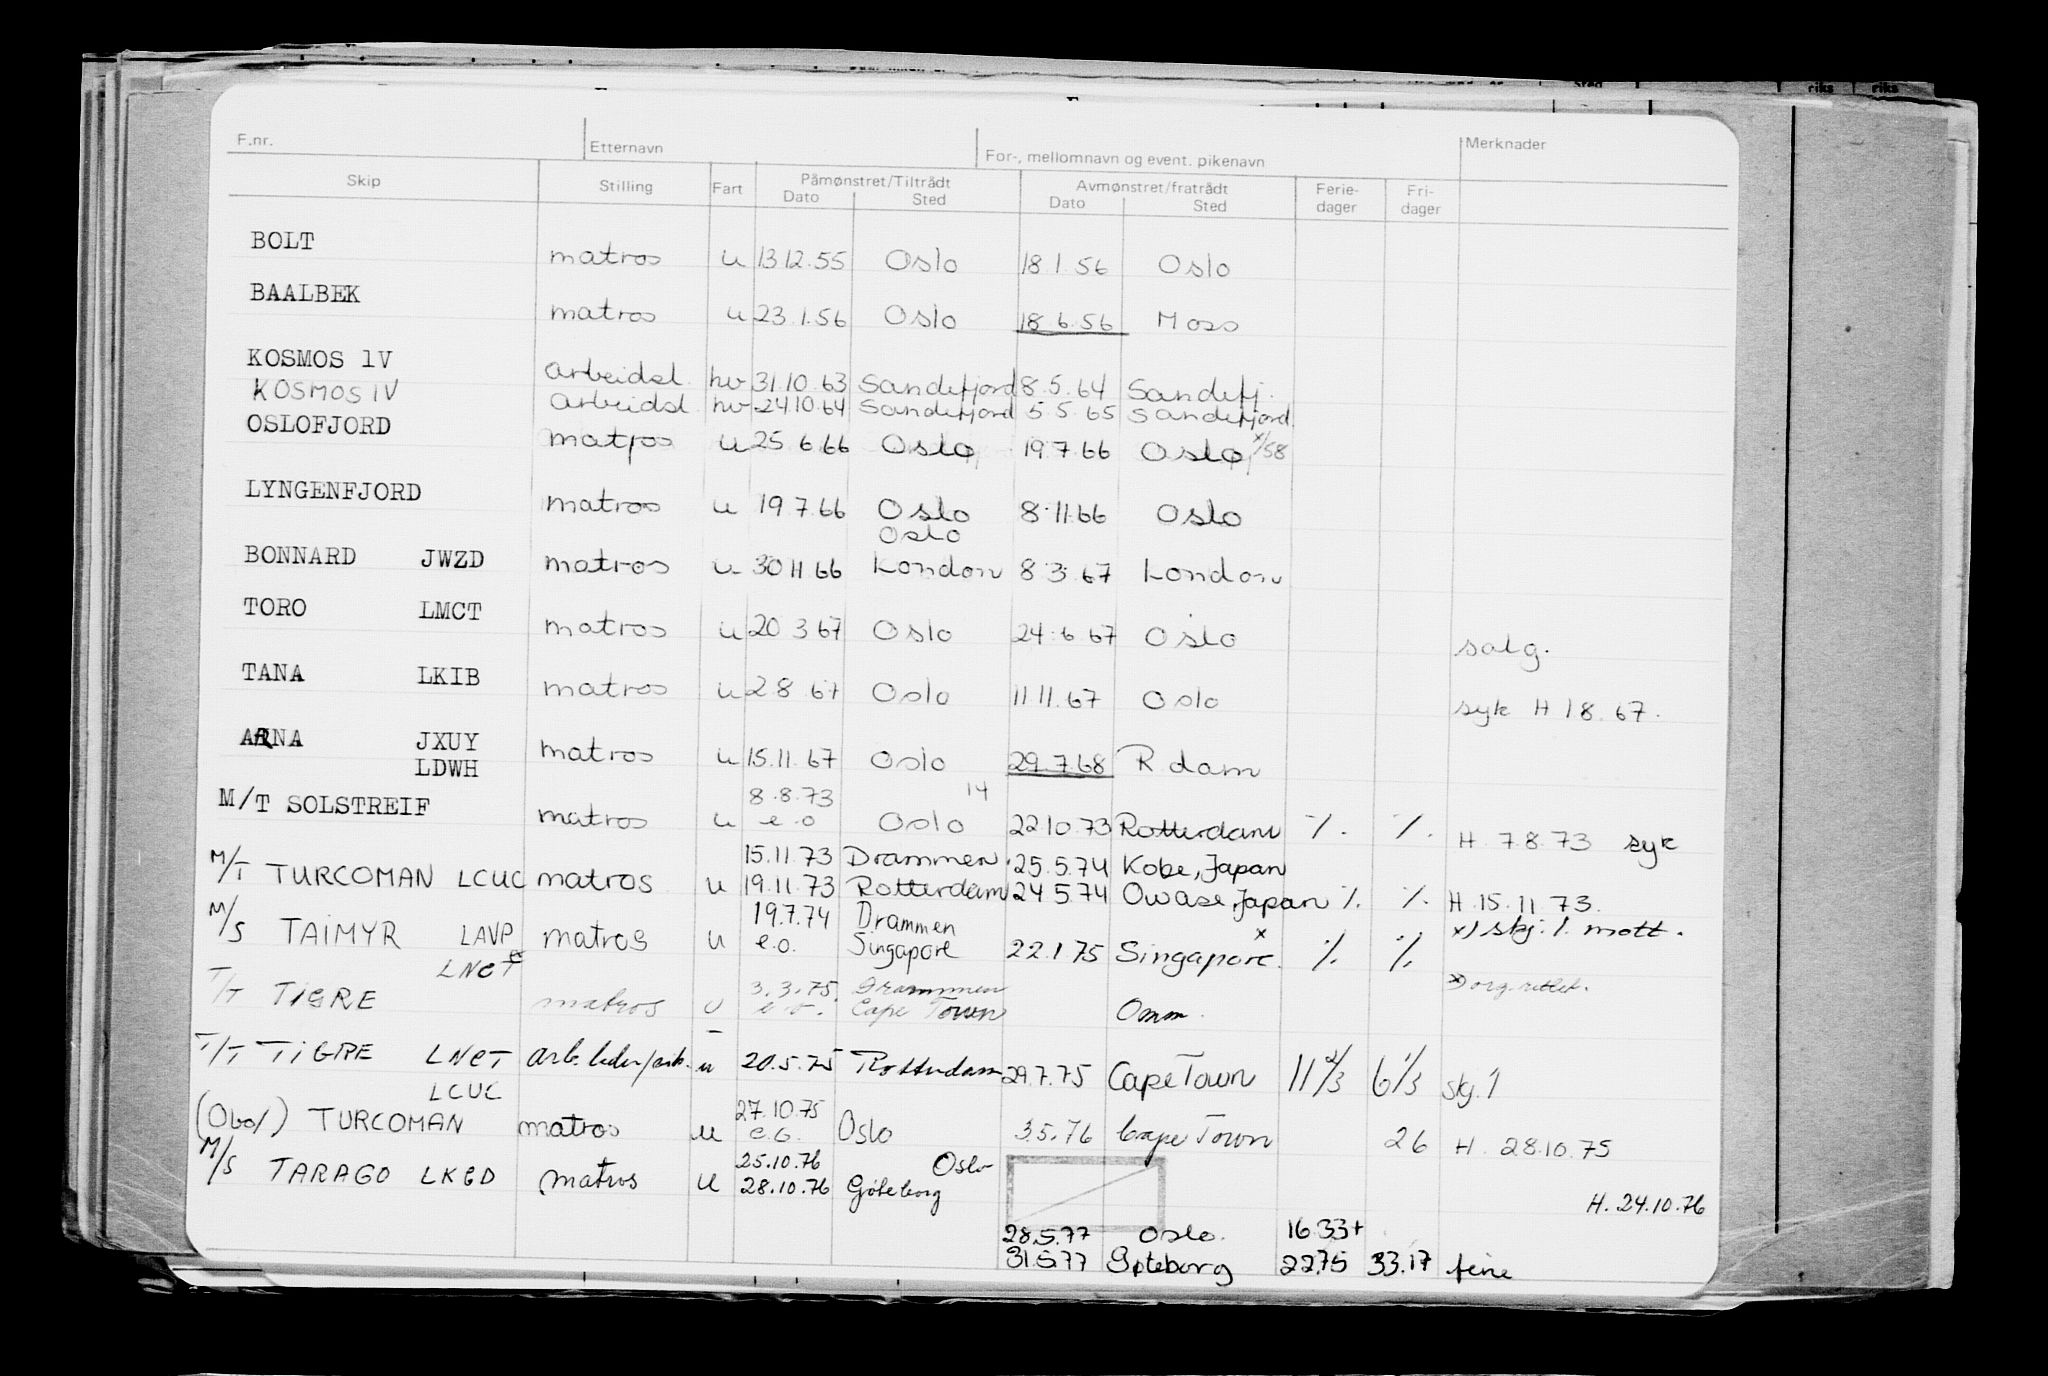 Sted riks riks
F.nr. Etternavn For-, mellomnavn og event. pikenavn Merknader
Skip Stilling Fart Påmønstret/Tiltrådt Avmønstret/fratrådt Ferie- Fri-
Dato Sted Dato Sted dager dager
BOLT matros u 13 12.55 Oslo 18.1.56 Oslo
BAALBEK matros u 23.1.56 Oslo 18.6.56 Moss
KOSMOS 1V arbeidsl. hv 31.10.63 Sandefjord 8.5.64 Sandefj.
KOSMOS IV arbeidsl. hv 24.10.64 Sandefjord 5.5.65 Sandefjord.
OSLOFJORD matros u 25 6.66 Oslo 19.7.66 Oslo x/58
LYNGENFJORD matros u 19.7.66 Oslo 8.11.66 Oslo
Oslo
BONNARD JWZD matros u 30 11 66 London 8.3.67 London
TORO LMCT matros u 20 3 67 Oslo 24.6.67 Oslo salg.
TANA LKIB matros u 2 8 67 Oslo 11 11.67 Oslo syk H 1 8.67.
ARNA JXUY matros u 15.11.67 Oslo 29.7.68 R.dam
LDWH
8.8.73 14
M/T SOLSTREIF matros u e.o Oslo 22.10.73 Rotterdam %. %. H. 7.8.73 syk
15.11.73 Drammen 25.5.74 Kobe, Japan
M/T TURCOMAN LCUC matros u 19.11.73 Rotterdam 24 5.74 Owase, Japan %. %. H.15.11.73.
19.7.74 Drammen x) skj. 1. mott.
M/S TAIMYR LAVP matros u e.o. Singapore 22.1.75 Singapore. x % %
LNCT 3.3.75. Drammen
T/T TIGRE matros u e.o. Cape Town Omm.
T/T TIGRE LNCT arb.leder/ u 20.5.75 Rotterdam 29.7.75 Cape Town 11 2/3 6 1/3 skj. 1
LCUC 27.10.75
(Obo/) TURCOMAN matros u e.o. Oslo 3.5.76 Cape Town 26 H. 28.10.75
25.10.76 Oslo
M/S TARAGO LKBD matros u 28.10.76 Göteborg H. 24.10.76
28.5.77 Oslo. 16.33+
31.5.77 Gøteborg 22.75 33.17 ferie